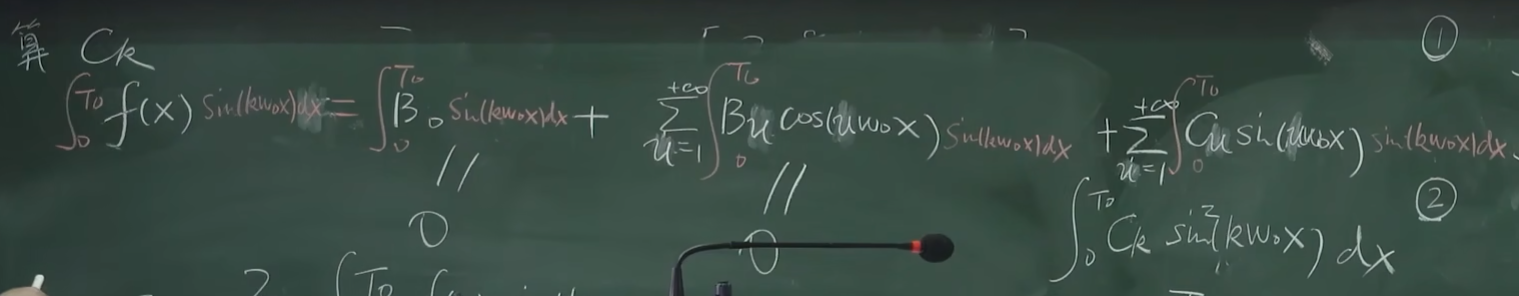 算 Ck ①
∫₀^T₀ f(x) sin(kw₀x)dx = ∫₀^T₀ B₀ sin(kw₀x)dx + Σ_{n=1}^{+∞} ∫₀^T₀ Bn cos(nw₀x) sin(kw₀x)dx + Σ_{n=1}^{+∞} ∫₀^T₀ Cn sin(nw₀x) sin(kw₀x)dx
// // ②
0 0 ∫₀^T₀ Ck sin²(kw₀x) dx